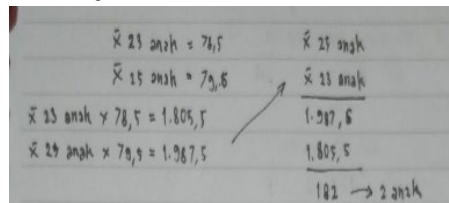 x̄ 23 anak = 78,5
x̄ 25 anak = 79,5
x̄ 23 anak x 78,5 = 1.805,5
x̄ 25 anak x 79,5 = 1.987,5
x̄ 25 anak
x̄ 23 anak
1.987,5
1.805,5
182 → 2 anak